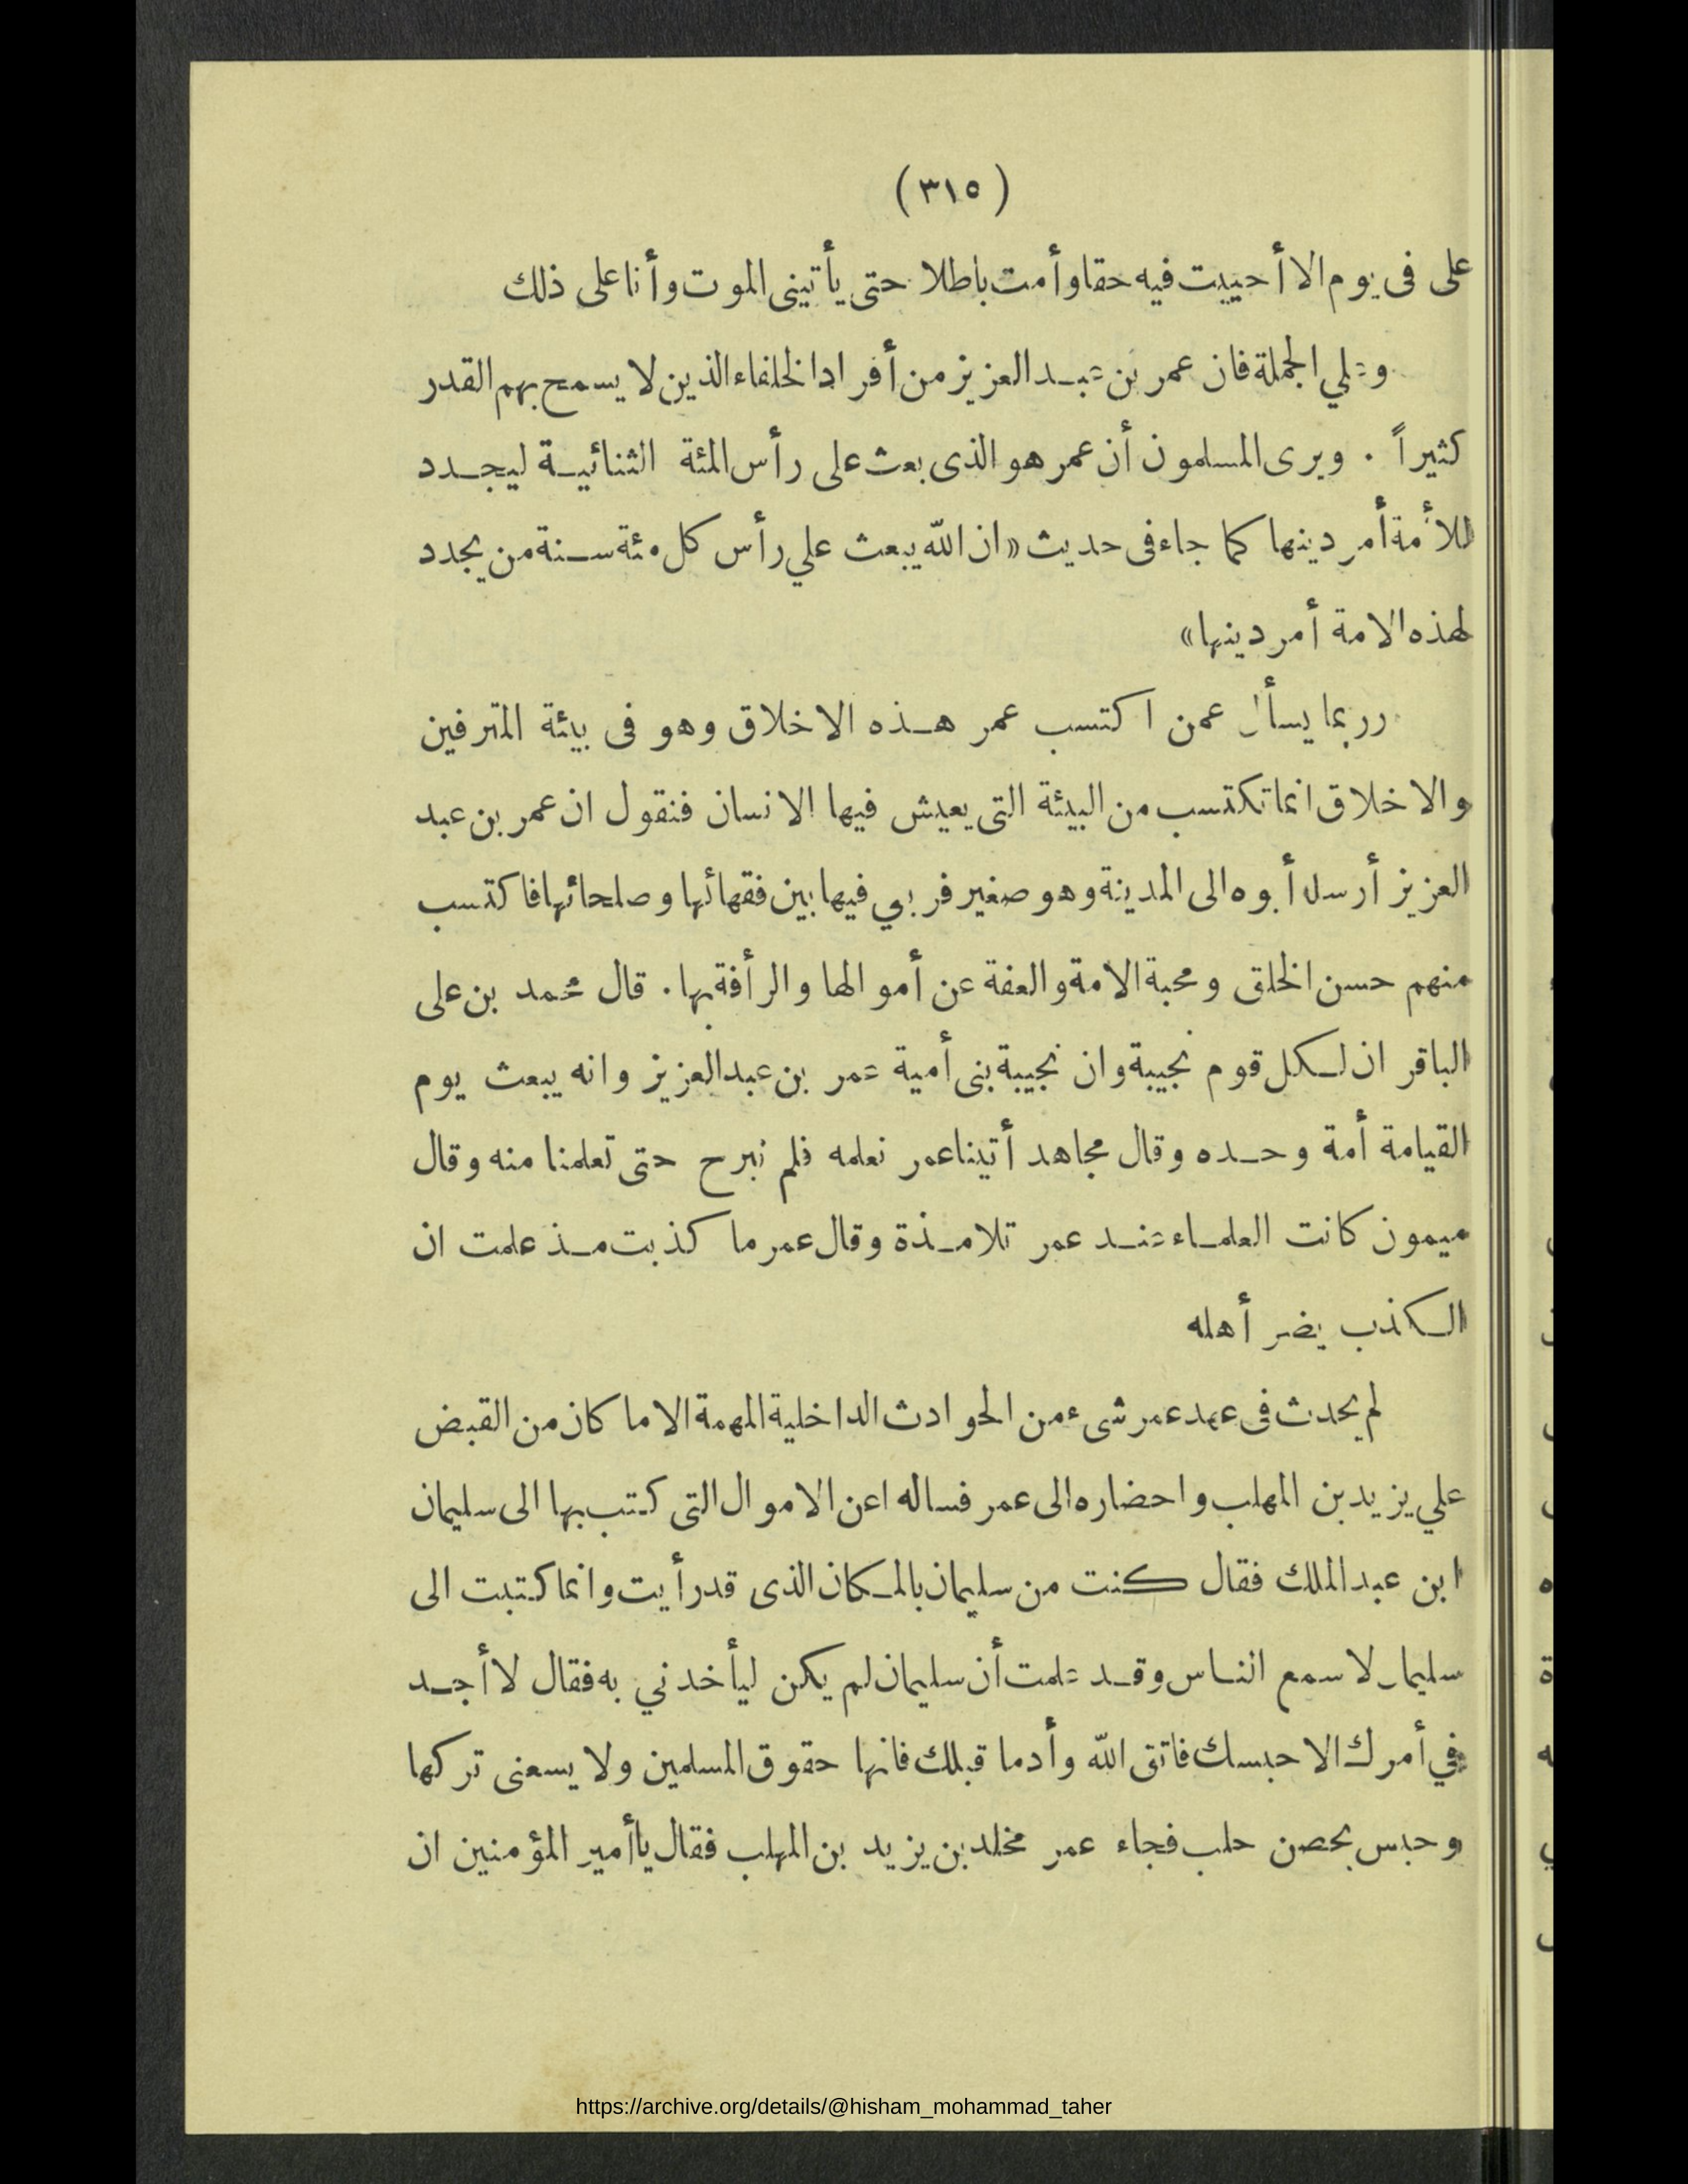 (٣١٥)
على فى يوم الا أحييت فيه حقا وأمت باطلا حتى يأتينى الموت وأنا على ذلك
وعلي الجملة فان عمر بن عبد العزيز من أفراد الخلفاء الذين لا يسمح بهم القدر
كثيراً . ويرى المسلمون أن عمر هو الذى بعث على رأس المئة الثنائية ليجدد
للأمة أمر دينها كما جاء فى حديث «ان الله يبعث علي رأس كل مئة سنة من يجدد
لهذه الامة أمر دينها»
ربما يسأل عمن اكتسب عمر هذه الاخلاق وهو فى بيئة المترفين
والاخلاق انما تكتسب من البيئة التى يعيش فيها الانسان فنقول ان عمر بن عبد
العزيز أرسله أبوه الى المدينة وهو صغير فربي فيها بين فقهائها وصلحائها فاكتسب
منهم حسن الخلق ومحبة الامة والعفة عن أموالها والرأفة بها. قال محمد بن على
الباقر ان لكل قوم نجيبة وان نجيبة بنى أمية عمر بن عبد العزيز وانه يبعث يوم
القيامة أمة وحده وقال مجاهد أتينا عمر نعلمه فلم نبرح حتى تعلمنا منه وقال
ميمون كانت العلماء عند عمر تلامذة وقال عمر ما كذبت مذ علمت ان
الكذب يضر أهله
لم يحدث فى عهد عمر شىء من الحوادث الداخلية المهمة الا ما كان من القبض
علي يزيد بن المهلب واحضاره الى عمر فساله اعن الاموال التى كتب بها الى سليمان
ابن عبد الملك فقال كنت من سليمان بالمكان الذى قد رأيت وانما كتبت الى
سليمان لاسمع الناس وقد علمت أن سليمان لم يكن ليأخدني به فقال لا أجد
في أمرك الا حبسك فاتق الله وأد ما قبلك فانها حقوق المسلمين ولا يسعنى تركها
وحبس بحصن حلب فجاء عمر مخلد بن يزيد بن المهلب فقال يا أمير المؤمنين ان
https://archive.org/details/@hisham_mohammad_taher